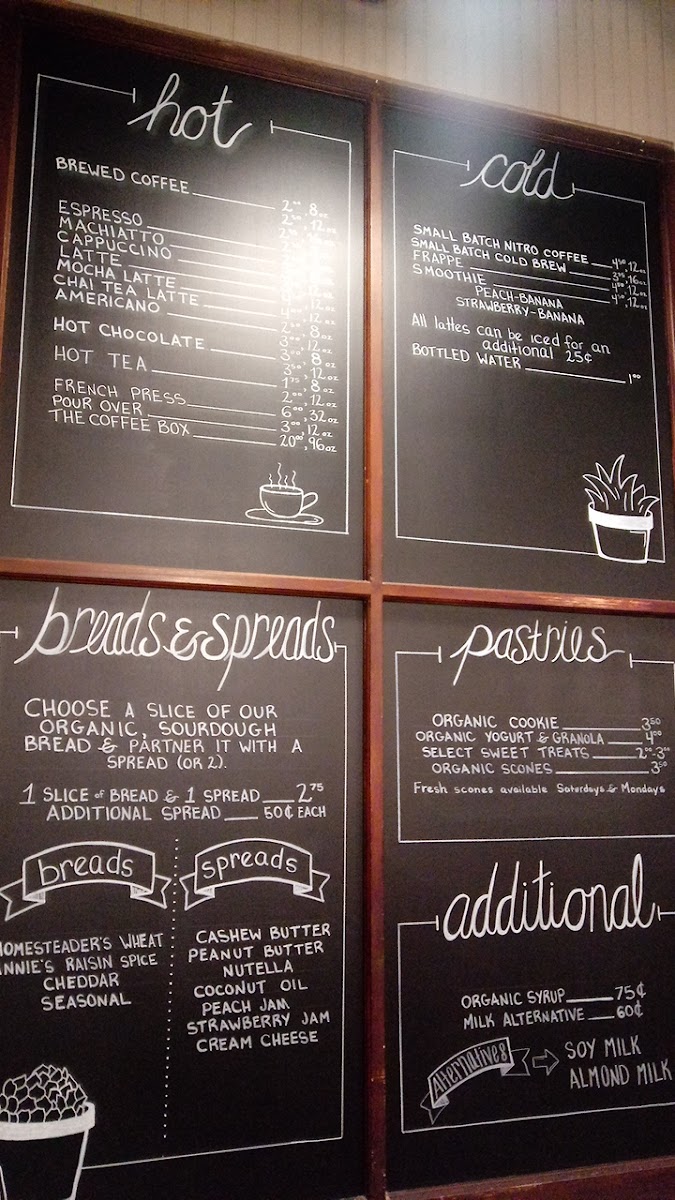 hot
BREWED COFFEE 2⁰⁰, 8oz
12oz
ESPRESSO
MACHIATTO
CAPPUCCINO
LATTE
MOCHA LATTE
CHAI TEA LATTE
AMERICANO
8oz
12oz
HOT CHOCOLATE 8oz
3⁵⁰, 12oz
HOT TEA 1⁷⁵, 8oz
2⁰⁰, 12oz
FRENCH PRESS 6⁰⁰, 32oz
POUR OVER 3⁰⁰, 12oz
THE COFFEE BOX 20⁰⁰, 96oz
cold
SMALL BATCH NITRO COFFEE 4⁵⁰, 12oz
SMALL BATCH COLD BREW 3⁹⁵, 16oz
FRAPPE 12oz
SMOOTHIE 12oz
PEACH-BANANA
STRAWBERRY-BANANA
All lattes can be iced for an
additional 25¢
BOTTLED WATER 1⁰⁰
breads & spreads
CHOOSE A SLICE OF OUR
ORGANIC, SOURDOUGH
BREAD & PARTNER IT WITH A
SPREAD (OR 2).
1 SLICE of BREAD & 1 SPREAD 2⁷⁵
ADDITIONAL SPREAD 60¢ EACH
breads
HOMESTEADER'S WHEAT
RAISIN SPICE
CHEDDAR
SEASONAL
spreads
CASHEW BUTTER
PEANUT BUTTER
NUTELLA
COCONUT OIL
PEACH JAM
STRAWBERRY JAM
CREAM CHEESE
pastries
ORGANIC COOKIE 3⁵⁰
ORGANIC YOGURT & GRANOLA 4⁰⁰
SELECT SWEET TREATS 2⁰⁰-3⁰⁰
ORGANIC SCONES 3⁵⁰
Fresh scones available Saturdays & Mondays
additional
ORGANIC SYRUP 75¢
MILK ALTERNATIVE 60¢
Alternatives
SOY MILK
ALMOND MILK